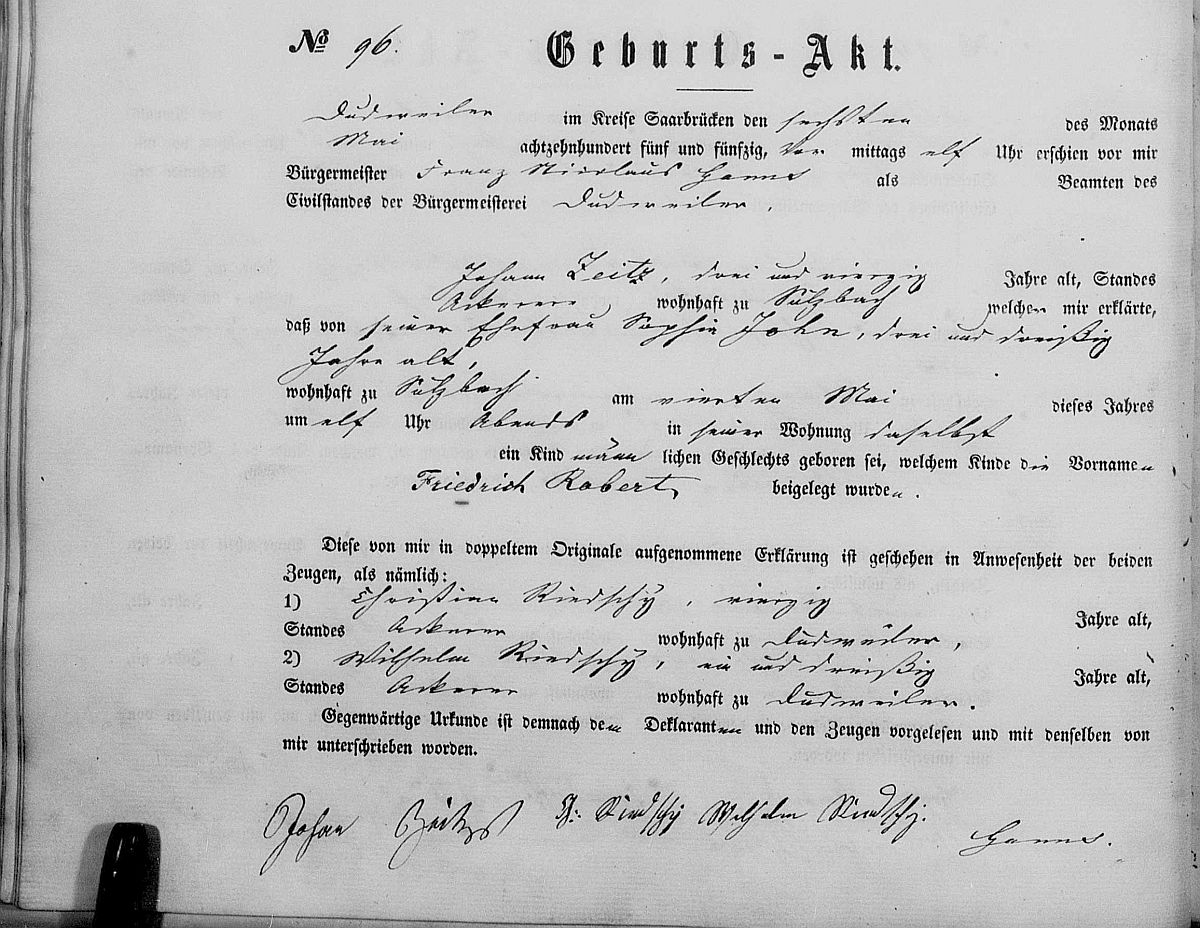 № 96. Geburts-Akt.
Dudweiler im Kreise Saarbrücken den sechsten des Monats
Mai achtzehnhundert fünf und fünfzig, Vor mittags elf Uhr erschien vor mir
Bürgermeister Franz Nicolaus als Beamten des
Civilstandes der Bürgermeisterei Dudweiler,
Johann Zeitz, drei und vierzig Jahre alt, Standes
Ackerer wohnhaft zu Sulzbach welcher mir erklärte,
daß von seiner Ehefrau Sophia John, drei und dreißig
Jahre alt,
wohnhaft zu Sulzbach am vierten Mai dieses Jahres
um elf Uhr Abends in seiner Wohnung daselbst
ein Kind männ lichen Geschlechts geboren sei, welchem Kinde die Vornamen
Friedrich Robert beigelegt wurden.
Diese von mir in doppeltem Originale aufgenommene Erklärung ist geschehen in Anwesenheit der beiden
Zeugen, als nämlich:
1) Christian Riedschy, vierzig Jahre alt,
Standes Ackerer wohnhaft zu Dudweiler,
2) Wilhelm Riedschy, ein und dreißig Jahre alt,
Standes Ackerer wohnhaft zu Dudweiler.
Gegenwärtige Urkunde ist demnach dem Deklaranten und den Zeugen vorgelesen und mit denselben von
mir unterschrieben worden.
Johan Zeitz Ch. Riedschy Wilhelm Riedschy.